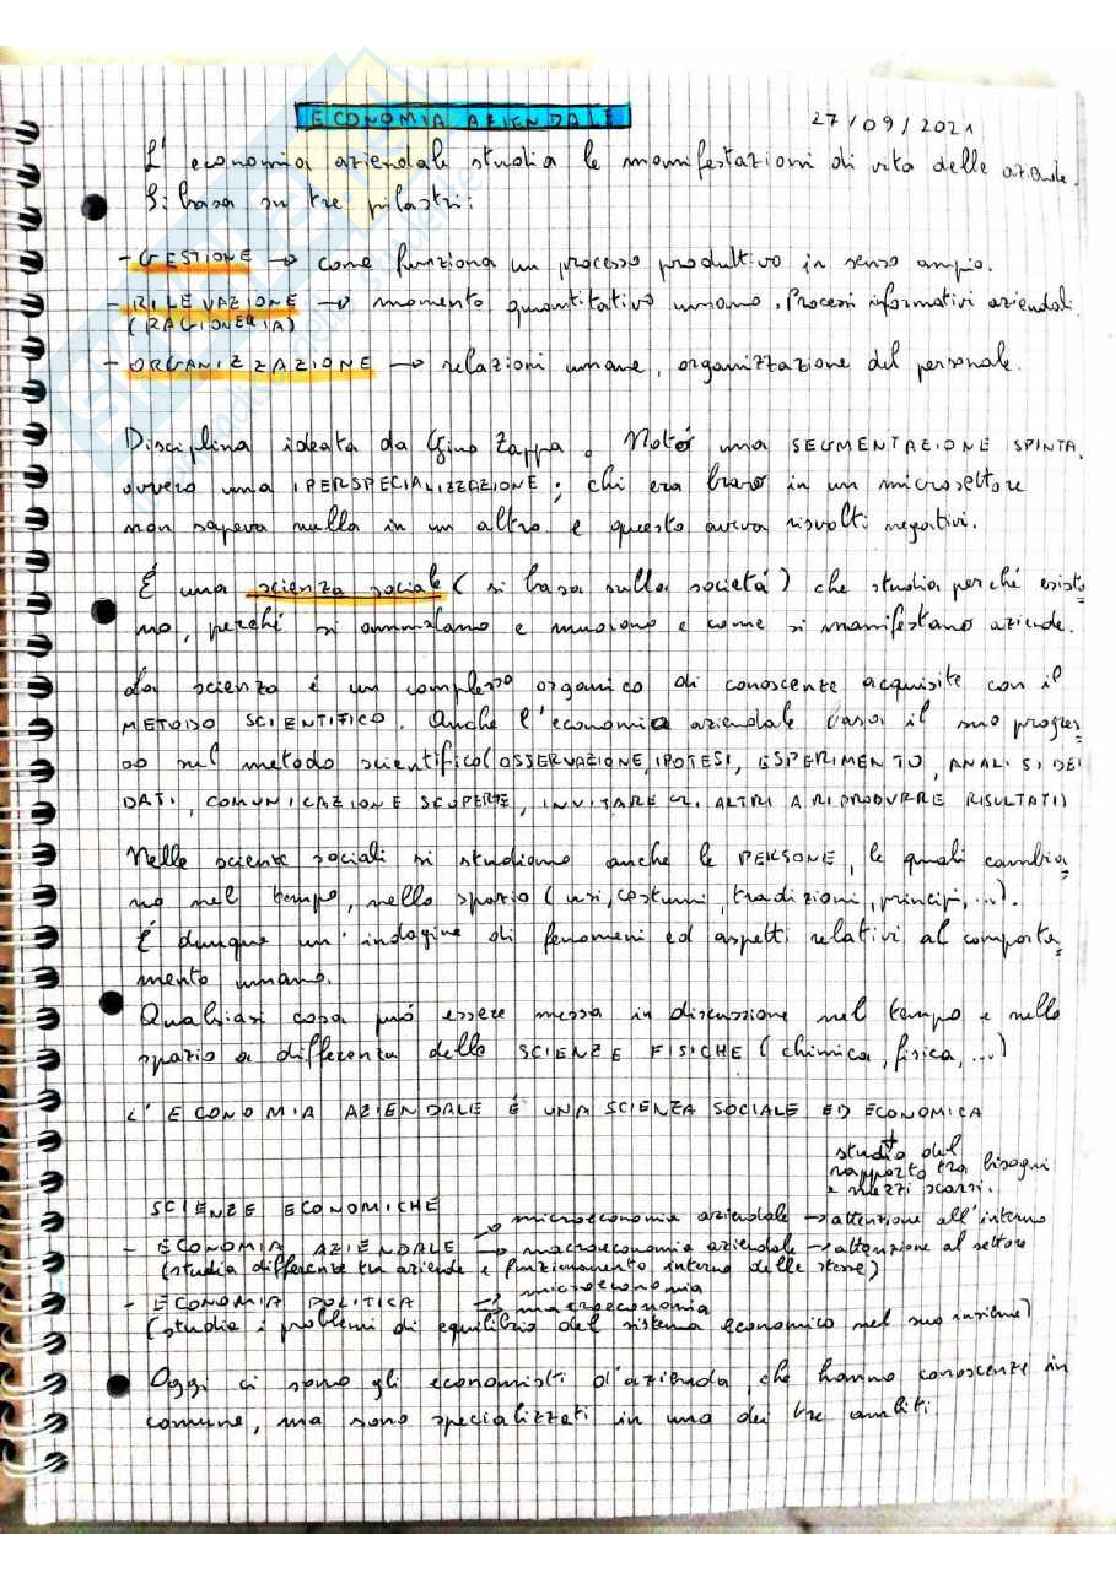 ECONOMIA AZIENDALE
27/09/2021
L'economia aziendale studia le manifestazioni di vita delle aziende.
Si basa su tre pilastri:
- GESTIONE → come funziona un processo produttivo in senso ampio.
- RILEVAZIONE → momento quantitativo umano. Processi informativi aziendali
(RAGIONERIA)
- ORGANIZZAZIONE → relazioni umane, organizzazione del personale.
Disciplina ideata da Gino Zappa. Notó una SEGMENTAZIONE SPINTA,
ovvero una IPERSPECIALIZZAZIONE; chi era bravo in un microsettore
non sapeva nulla in un altro e questo aveva risvolti negativi.
É una scienza sociale (si basa sulla societá) che studia perché esisto=
no, perché si ammalano e muoiono e come si manifestano aziende.
La scienza é un complesso organico di conoscenze acquisite con il
METODO SCIENTIFICO. Anche l'economia aziendale basa il suo progres=
so nel metodo scientifico (OSSERVAZIONE, IPOTESI, ESPERIMENTO, ANALISI DEI
DATI, COMUNICAZIONE SCOPERTE, INVITARE GLI ALTRI A RIPRODURRE RISULTATI)
Nelle scienze sociali si studiano anche le PERSONE, le quali cambia=
no nel tempo, nello spazio (usi, costumi, tradizioni, principi, ...).
É dunque un'indagine di fenomeni ed aspetti relativi al comporta=
mento umano.
Qualsiasi cosa puó essere messa in discussione nel tempo e nello
spazio a differenza delle SCIENZE FISICHE (chimica, fisica, ...)
L'ECONOMIA AZIENDALE É UNA SCIENZA SOCIALE ED ECONOMICA
studio del
rapporto tra bisogni
e mezzi scarsi.
SCIENZE ECONOMICHE
→ microeconomia aziendale → attenzione all'interno
- ECONOMIA AZIENDALE → macroeconomia aziendale → attenzione al settore
(studia differenze tra aziende e funzionamento interno delle stesse)
→ microeconomia
- ECONOMIA POLITICA → macroeconomia
(studia i problemi di equilibrio del sistema economico nel suo insieme)
Oggi ci sono gli economisti d'azienda che hanno conoscenze in
comune, ma sono specializzati in uno dei tre ambiti